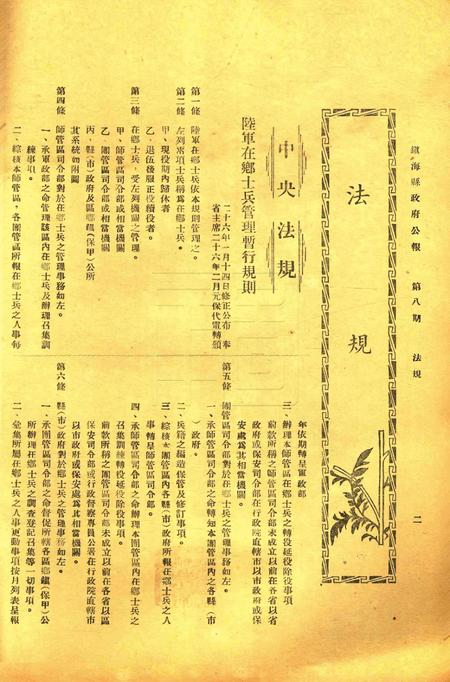 鎮海縣政府公報　第八期　法規　二
法規
中央法規
陸軍在鄉士兵管理暫行規則
二十六年一月十四日修正公布　奉
省主席二十六年二月元保代電轉頒
第一條　陸軍在鄉士兵依本規則管理之。
第二條　左列常項士兵稱為在鄉士兵。
甲、現役期內歸休者
乙、退伍後服正役續役者。
第三條　在鄉士兵，受左列機關之管理。
甲、師管區司令部或相當機關
乙、團管區司令部或相當機關
丙、縣（市）政府及區鄉鎮（保甲）公所
其系統如附圖
第四條　師管區司令部對於在鄉士兵之管理事務如左。
一、承軍政部之命管理該區內在鄉士兵及辦理召集訓
練事項。
二、綜核本師管區，各團管區所報在鄉士兵之人事每
年依期轉呈軍政部
三、辦理本師管區在鄉士兵之轉役延役除役事項
前款所稱之師管區司令部未成立以前在各省以省
政府或保安司令部在行政院直轄市以市政府或保
安處為其相當機關。
第五條　團管區司令部對於在鄉士兵之管理事務如左。
一、承師管區司令部之命轉知本團管區內之各縣（市
）政府。
二、兵籍之編造保管及修訂事項。
三、綜核本團管區內各縣（市）政府所報在鄉士兵之人
事轉呈師管區司令部。
四、承師管區司令部之命辦理本團管區內在鄉士兵之
召集訓練轉役延役除役事項。
前款所稱之團管區司令部未成立以前在各省以區
保安司令部或行政督察專員公署在行政院直轄市
以市政府或保安處為其相當機關。
第六條　縣（市）政府對於在鄉士兵之管理事務如左。
一、承團管區司令部之命督促所轄各區鄉鎮（保甲）公
所辦理在鄉士兵之調查登記召集等一切事項。
二、彙集所屬在鄉士兵之人事更動事項按月列表呈報